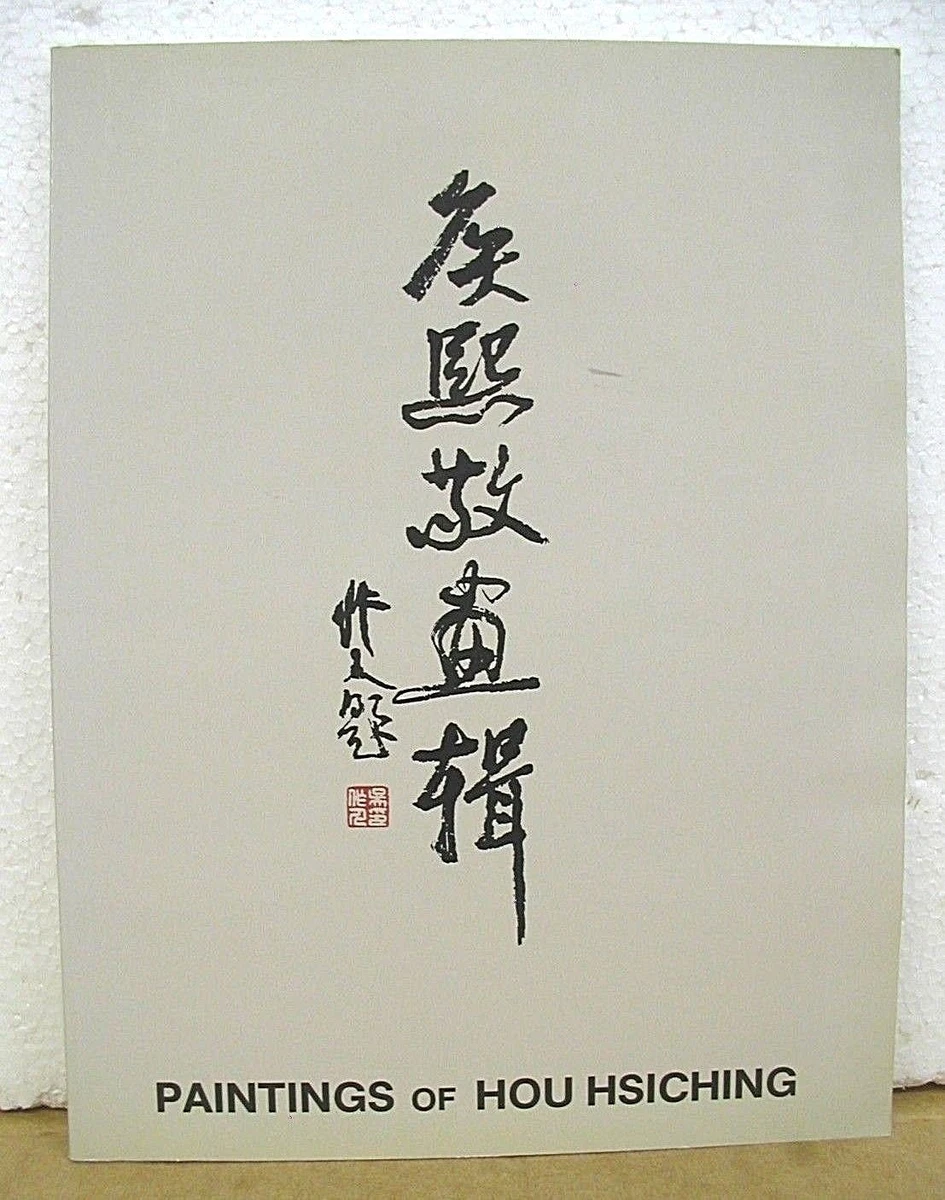 侯熙敬畫輯
作人題
PAINTINGS OF HOU HSICHING